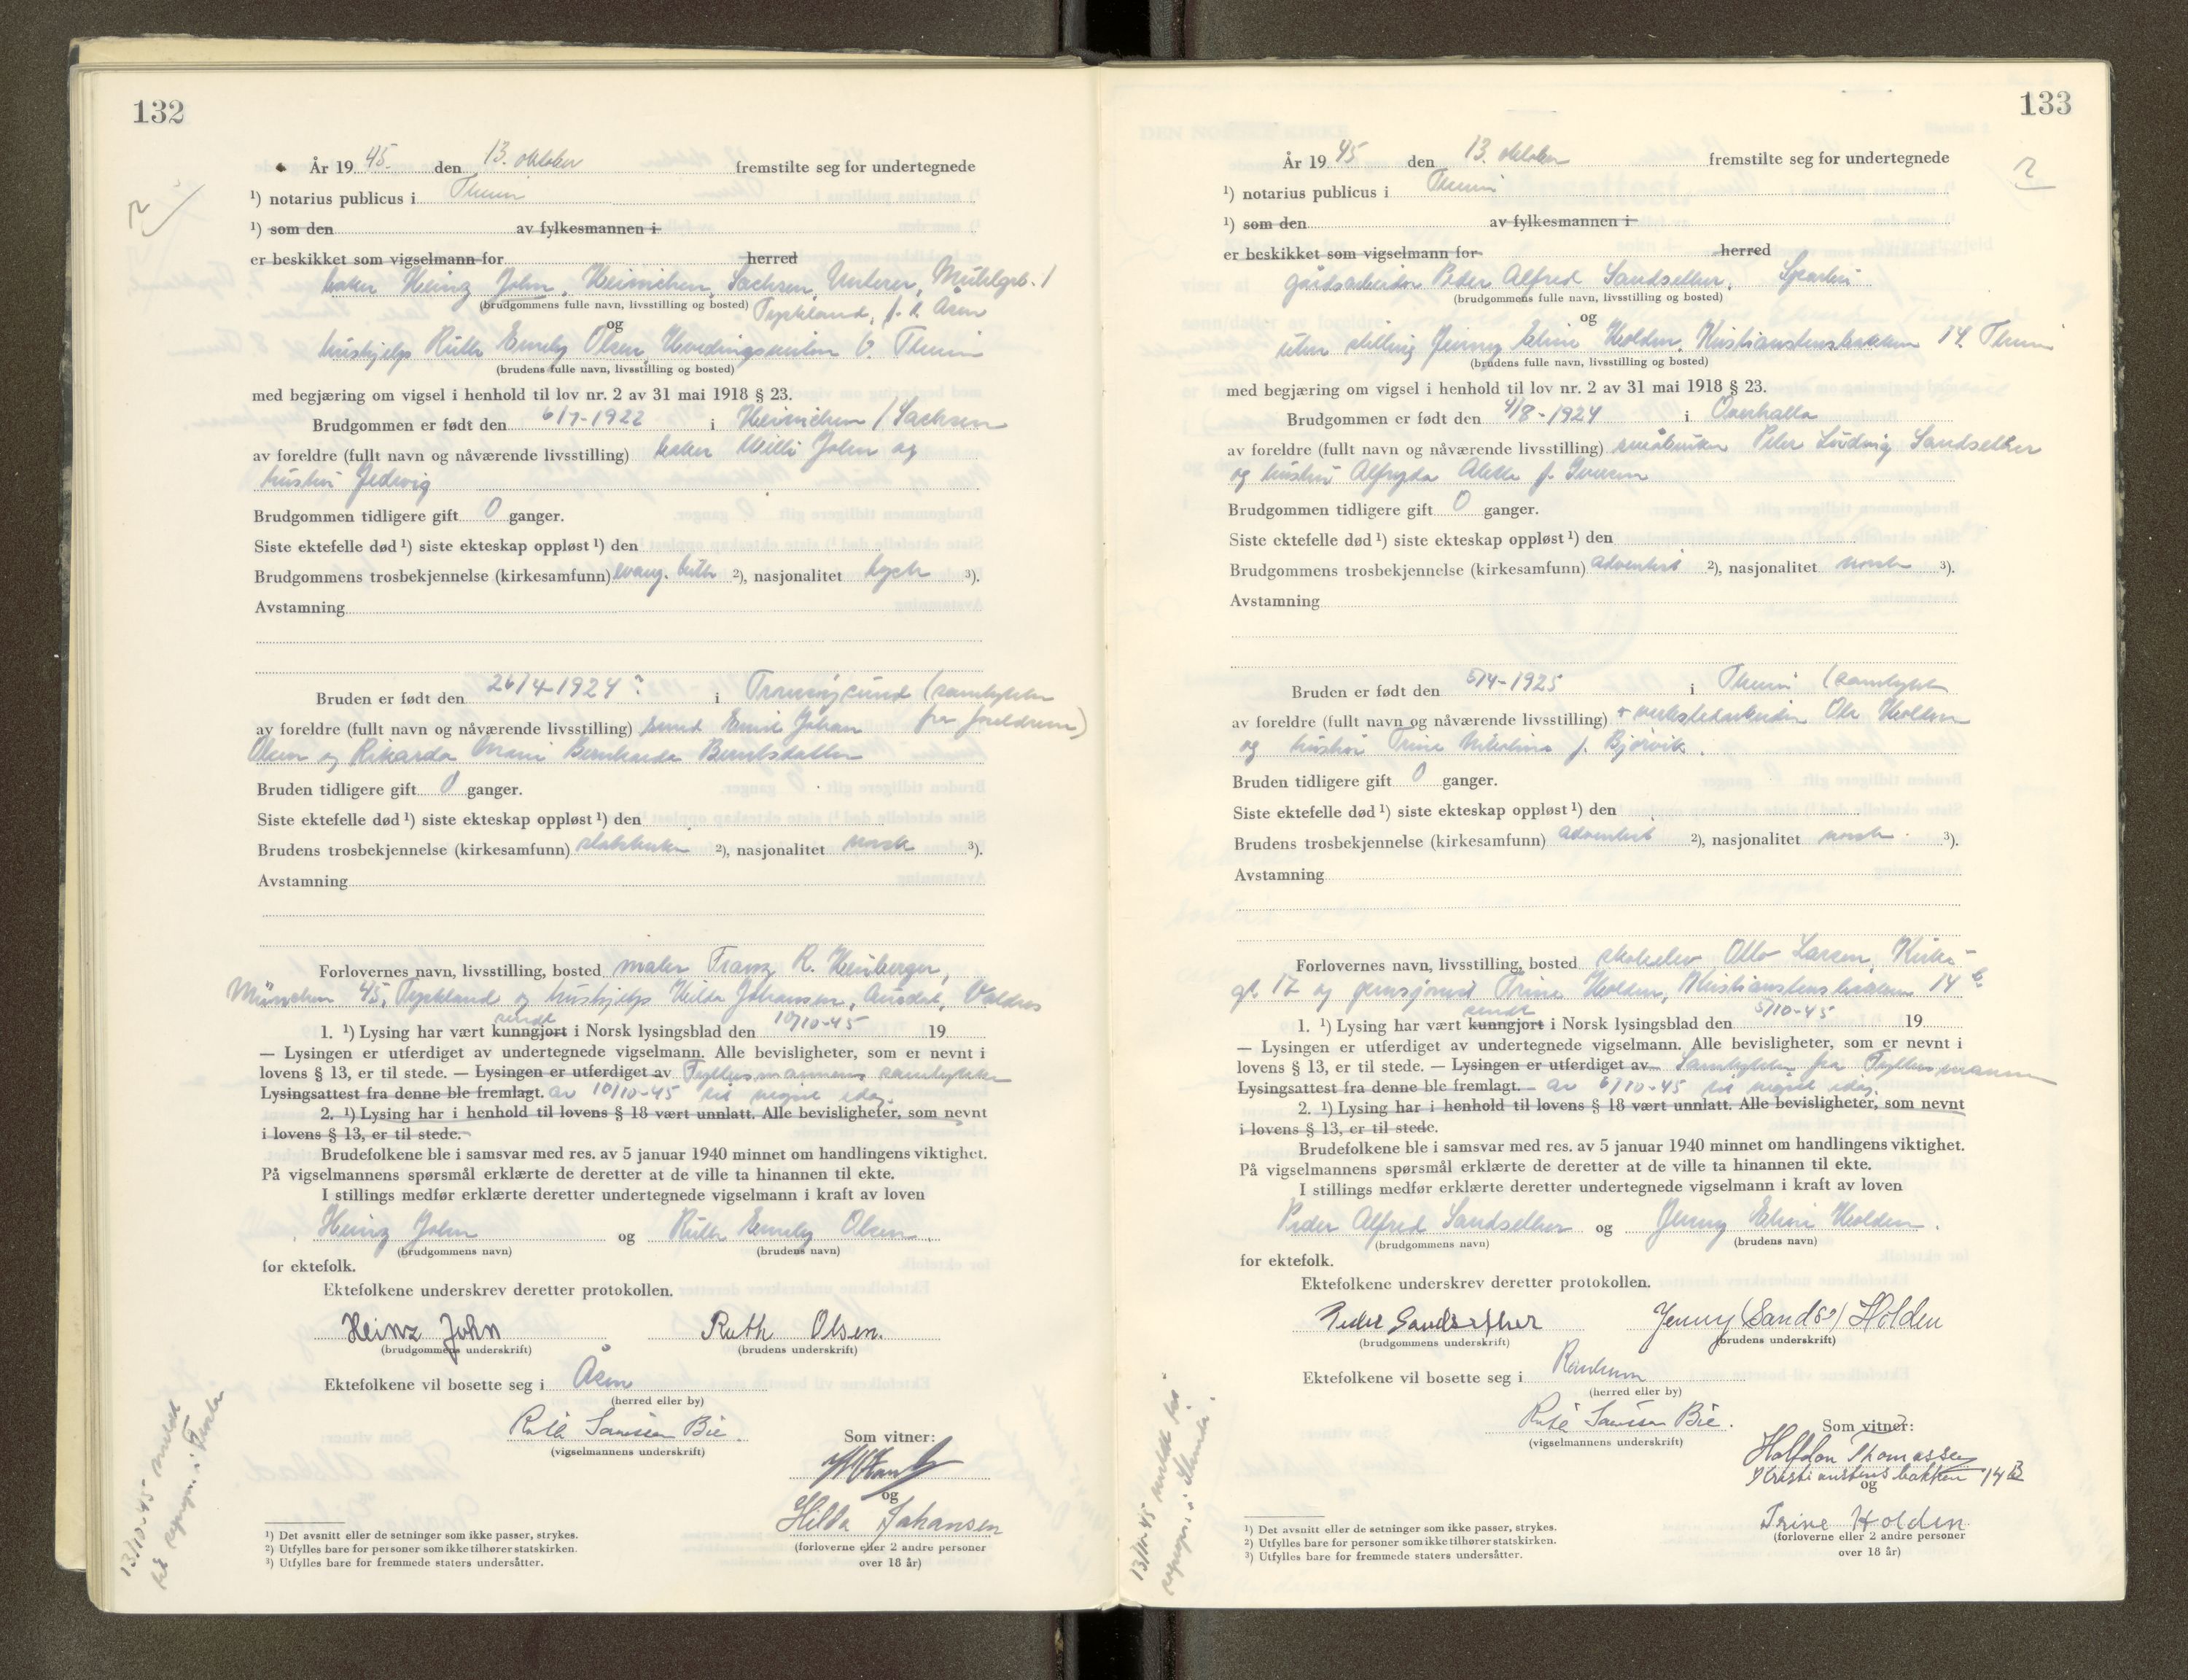 132
År 19 45 den 13. oktober fremstilte seg for undertegnede
¹) notarius publicus i Theim
¹) som den av fylkesmannen i
er beskikket som vigselmann for herred
baker Heinz John, Heinichen, Sachsen, Unterer, Mühlgrb. 1
(brudgommens fulle navn, livsstilling og bosted) Tyskland, f. t. Åsen
og
hushjelp Ruth Emely Olsen, 6. Theim
(brudens fulle navn, livsstilling og bosted)
med begjæring om vigsel i henhold til lov nr. 2 av 31 mai 1918 § 23.
Brudgommen er født den 6/7-1922 i Heinichen / Sachsen
av foreldre (fullt navn og nåværende livsstilling) baker Willi John og
hustru Jedwig
Brudgommen tidligere gift 0 ganger.
Siste ektefelle død ¹) siste ekteskap oppløst ¹) den
Brudgommens trosbekjennelse (kirkesamfunn) evang. luth ²), nasjonalitet tysk ³).
Avstamning
Bruden er født den 26/4-1924 i Tromsøysund (samtykke
av foreldre (fullt navn og nåværende livsstilling) Emil Johan fra foreldrene)
Olsen og Rikarda Marie Bernharda Berntsdatter
Bruden tidligere gift 0 ganger.
Siste ektefelle død ¹) siste ekteskap oppløst ¹) den
Brudens trosbekjennelse (kirkesamfunn) statskirken ²), nasjonalitet norsk ³).
Avstamning
Forlovernes navn, livsstilling, bosted maler Franz R. Heinberger,
München 45, Tyskland og hushjelp Hilda Johansen, Aurdal, Valdres
sendt
1. ¹) Lysing har vært kunngjort i Norsk lysingsblad den 10/10-45 19
— Lysingen er utferdiget av undertegnede vigselmann. Alle bevisligheter, som er nevnt i
lovens § 13, er til stede. — Lysingen er utferdiget av Fylkesmannens samtykke
Lysingsattest fra denne ble fremlagt. av 10/10-45 til vigsel idag.
2. ¹) Lysing har i henhold til lovens § 18 vært unnlatt. Alle bevisligheter, som nevnt
i lovens § 13, er til stede.
Brudefolkene ble i samsvar med res. av 5 januar 1940 minnet om handlingens viktighet.
På vigselmannens spørsmål erklærte de deretter at de ville ta hinannen til ekte.
I stillings medfør erklærte deretter undertegnede vigselmann i kraft av loven
Heinz John og Ruth Emely Olsen.
(brudgommens navn) (brudens navn)
for ektefolk.
Ektefolkene underskrev deretter protokollen.
Heinz John Ruth Olsen.
(brudgommens underskrift) (brudens underskrift)
Ektefolkene vil bosette seg i Åsen
(herred eller by)
Bie.
(vigselmannens underskrift)
Som vitner:
og
Hilda Johansen
(forloverne eller 2 andre personer
over 18 år)
13/10-45 meldt
¹) Det avsnitt eller de setninger som ikke passer, strykes.
²) Utfylles bare for personer som ikke tilhører statskirken.
³) Utfylles bare for fremmede staters undersåtter.
133
År 19 45 den 13. oktober fremstilte seg for undertegnede
¹) notarius publicus i Theim
¹) som den av fylkesmannen i
er beskikket som vigselmann for herred
gårdsarbeider Peder Alfred Sandsether, Sparbu
(brudgommens fulle navn, livsstilling og bosted)
og
uten stilling Jenny Eline Holden, Kristianstensbakken 14, Theim
(brudens fulle navn, livsstilling og bosted)
med begjæring om vigsel i henhold til lov nr. 2 av 31 mai 1918 § 23.
Brudgommen er født den 4/8-1924 i Overhalla
av foreldre (fullt navn og nåværende livsstilling) småbruker Peter Ludvig Sandsether
og hustru Alfryda Aletta f. Iversen
Brudgommen tidligere gift 0 ganger.
Siste ektefelle død ¹) siste ekteskap oppløst ¹) den
Brudgommens trosbekjennelse (kirkesamfunn) adventist ²), nasjonalitet norsk ³).
Avstamning
Bruden er født den 5/4-1925 i Theim (samtykke
av foreldre (fullt navn og nåværende livsstilling) + verkstedarbeider Ole Holden
og hustru Trine Nikoline f. Bjørvik.
Bruden tidligere gift 0 ganger.
Siste ektefelle død ¹) siste ekteskap oppløst ¹) den
Brudens trosbekjennelse (kirkesamfunn) adventist ²), nasjonalitet norsk ³).
Avstamning
Forlovernes navn, livsstilling, bosted skoleelev Otto Larsen, Kirke-
gt. 17 og Trine Holden, Kristianstensbakken 14 b
sendt
1. ¹) Lysing har vært kunngjort i Norsk lysingsblad den 5/10-45 19
— Lysingen er utferdiget av undertegnede vigselmann. Alle bevisligheter, som er nevnt i
lovens § 13, er til stede. — Lysingen er utferdiget av Samtykke fra Fylkesmannen
Lysingsattest fra denne ble fremlagt. av 6/10-45 til vigsel idag.
2. ¹) Lysing har i henhold til lovens § 18 vært unnlatt. Alle bevisligheter, som nevnt
i lovens § 13, er til stede.
Brudefolkene ble i samsvar med res. av 5 januar 1940 minnet om handlingens viktighet.
På vigselmannens spørsmål erklærte de deretter at de ville ta hinannen til ekte.
I stillings medfør erklærte deretter undertegnede vigselmann i kraft av loven
Peder Alfred Sandsether og Jenny Eline Holden.
(brudgommens navn) (brudens navn)
for ektefolk.
Ektefolkene underskrev deretter protokollen.
Peder Sandsether Jenny Holden
(brudgommens underskrift) (brudens underskrift)
Ektefolkene vil bosette seg i Ranheim
(herred eller by)
Bie.
(vigselmannens underskrift)
Som vitner:
Halfdan Thomassen
Kristianstensbakken 14 B
og
Trine Holden
(forloverne eller 2 andre personer
over 18 år)
13/10-45 meldt
¹) Det avsnitt eller de setninger som ikke passer, strykes.
²) Utfylles bare for personer som ikke tilhører statskirken.
³) Utfylles bare for fremmede staters undersåtter.